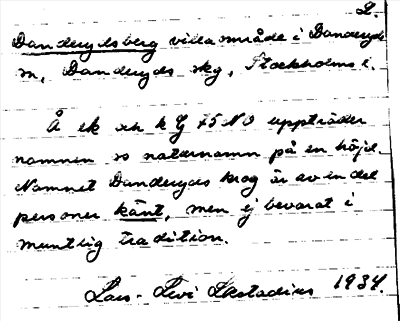 L.
Danderydsberg villaområde i Danderyds
sn, Danderyds skg, Stockholms l.
Å ek och k G 75 NO uppträder
namnen ss naturnamn på en höjd.
Namnet Danderyds krog är av en del
personer känt, men ej bevarat i
muntlig tradition.
Lars-Levi Læstadius 1934.